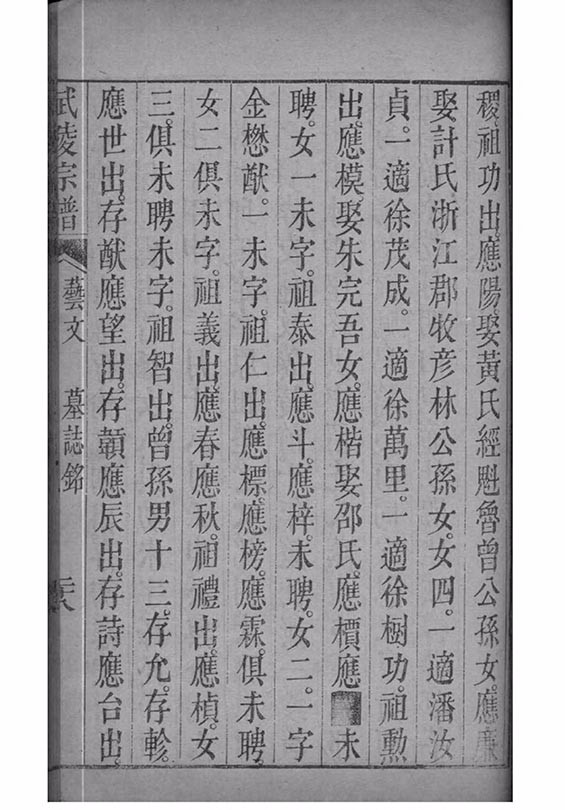 稷祖功出應陽娶黃氏經魁魯曾公孫女應廉
娶計氏浙江郡牧彥林公孫女女四一適潘汝
貞一適徐茂成一適徐萬里一適徐樹功祖勲
出應模娶朱完吾女應楷娶邵氏應檟應未
聘女一未字祖泰出應斗應梓未聘女二一字
金懋猷一未字祖仁出應標應榜應霖俱未聘
女二俱未字祖義出應春應秋祖禮出應楨女
三俱未聘未字祖智出曾孫男十三存允存軫
應世出存猷應望出存韻應辰出存詩應台出
武陵宗譜 藝文 墓誌銘